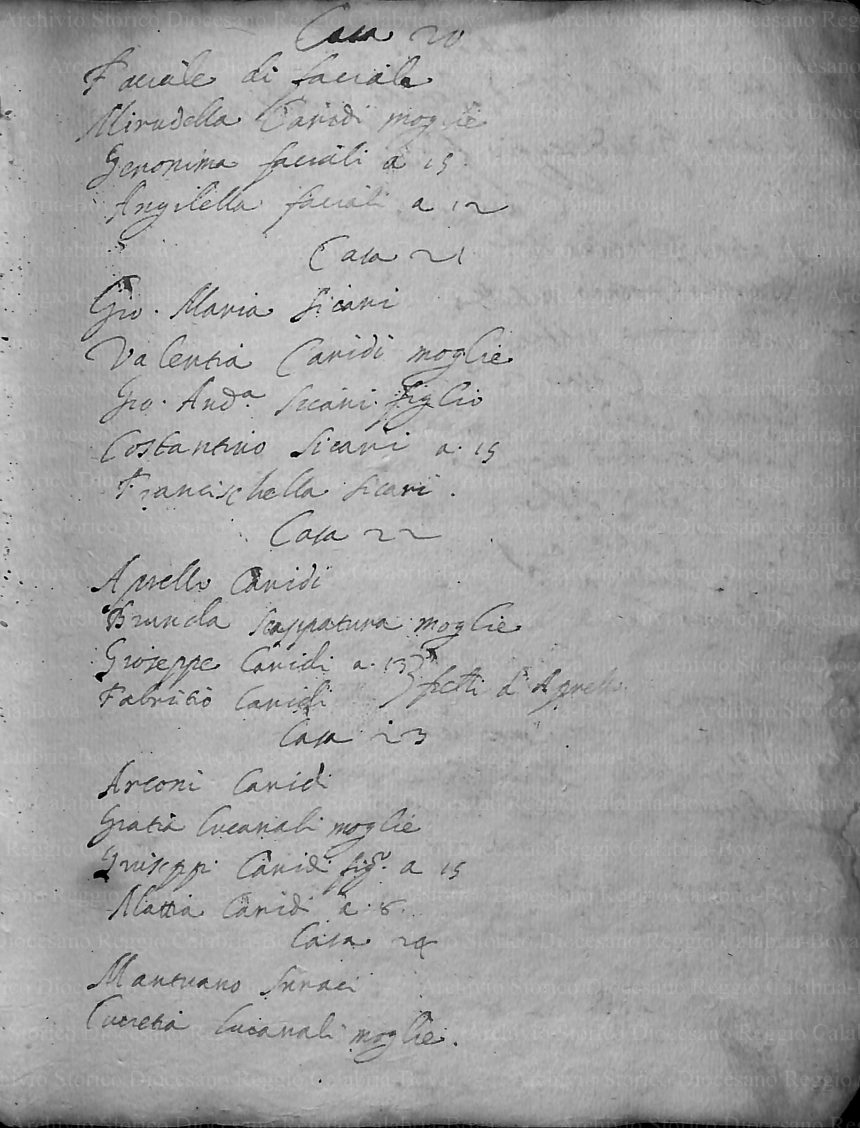 Casa 20
Faciale di faciale
Mirudella Caridi moglie
Geronima faciali a 15
Angilella faciali a 12
Casa 21
Gio. Maria Sicari
Valentia Caridi moglie
Gio. And.a Sicari figlio
Costantino Sicari a. 15
Francischella Sicari.
Casa 22
Aprello Caridi
Brunela Scappatura moglie
Gioseppe Caridi a. 13
Fabritio Caridi } fr̃lli d'Aprello
Casa 23
Arconi Caridi
Gratia Lucanali moglie
Giuseppi Caridi fig.o a 15
Mattia Caridi a. 8.
Casa 24
Mantuano Suraci
Lucretia Lucanali moglie.